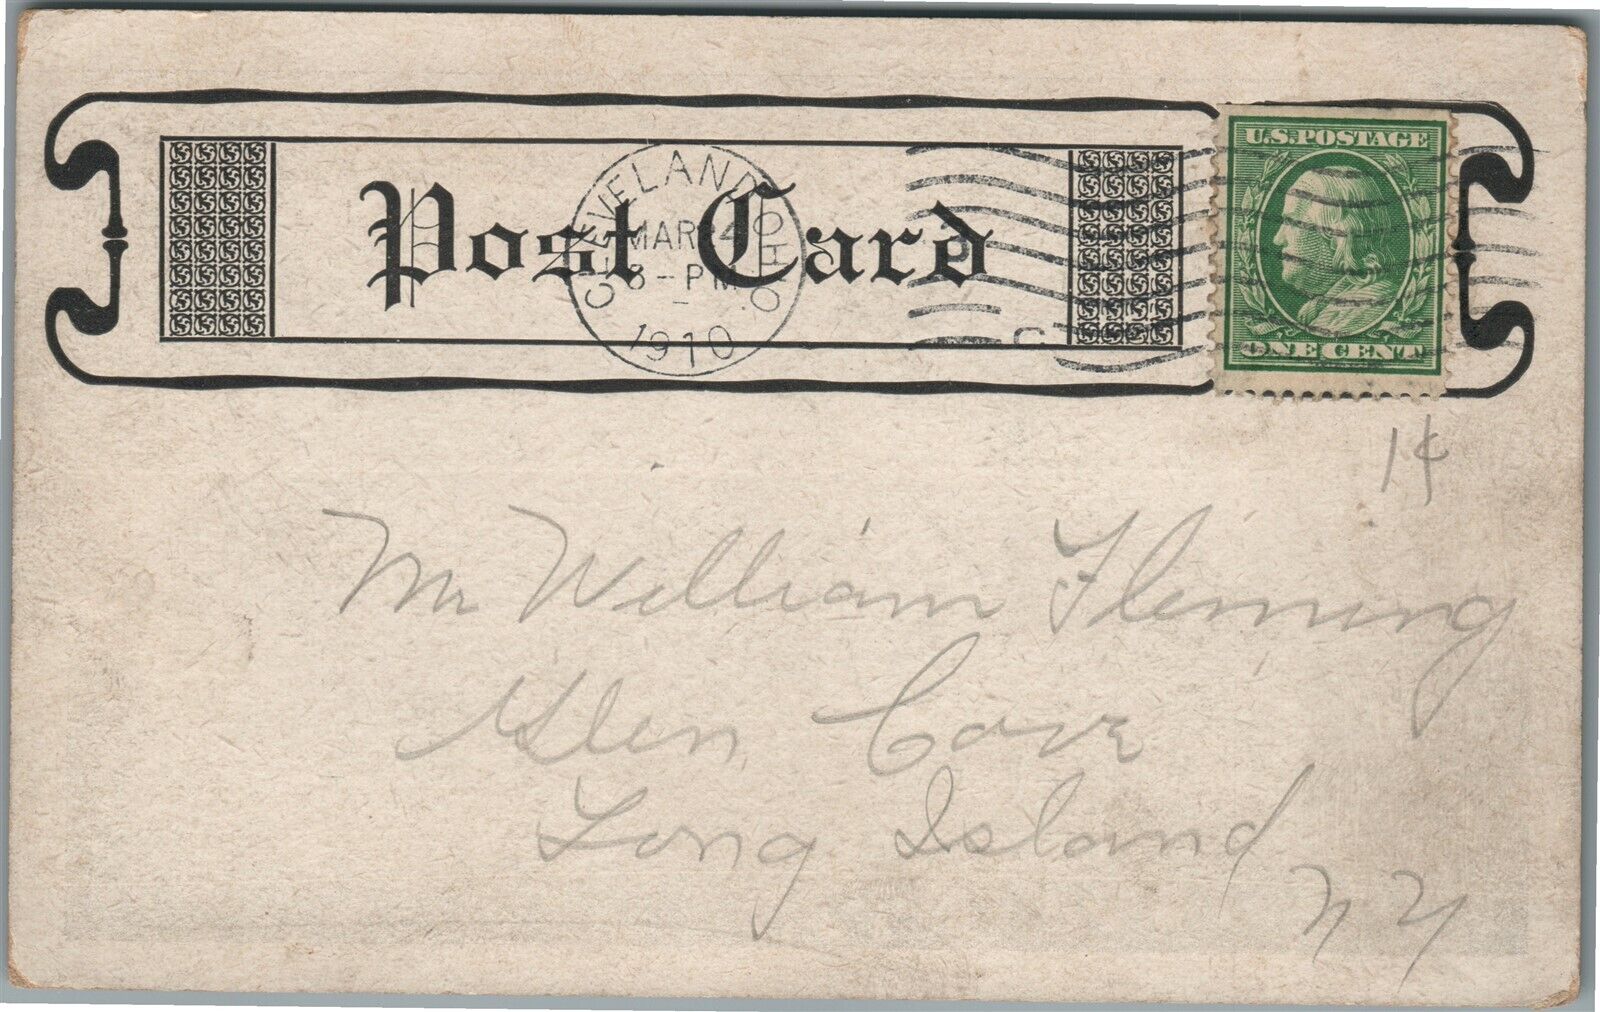 U.S. POSTAGE
Post Card
CLEVELAND, OHIO.
MAR 4
8-PM
1910
ONE CENT
1¢
Mr William Fleming
Glen Cove
Long Island
N Y